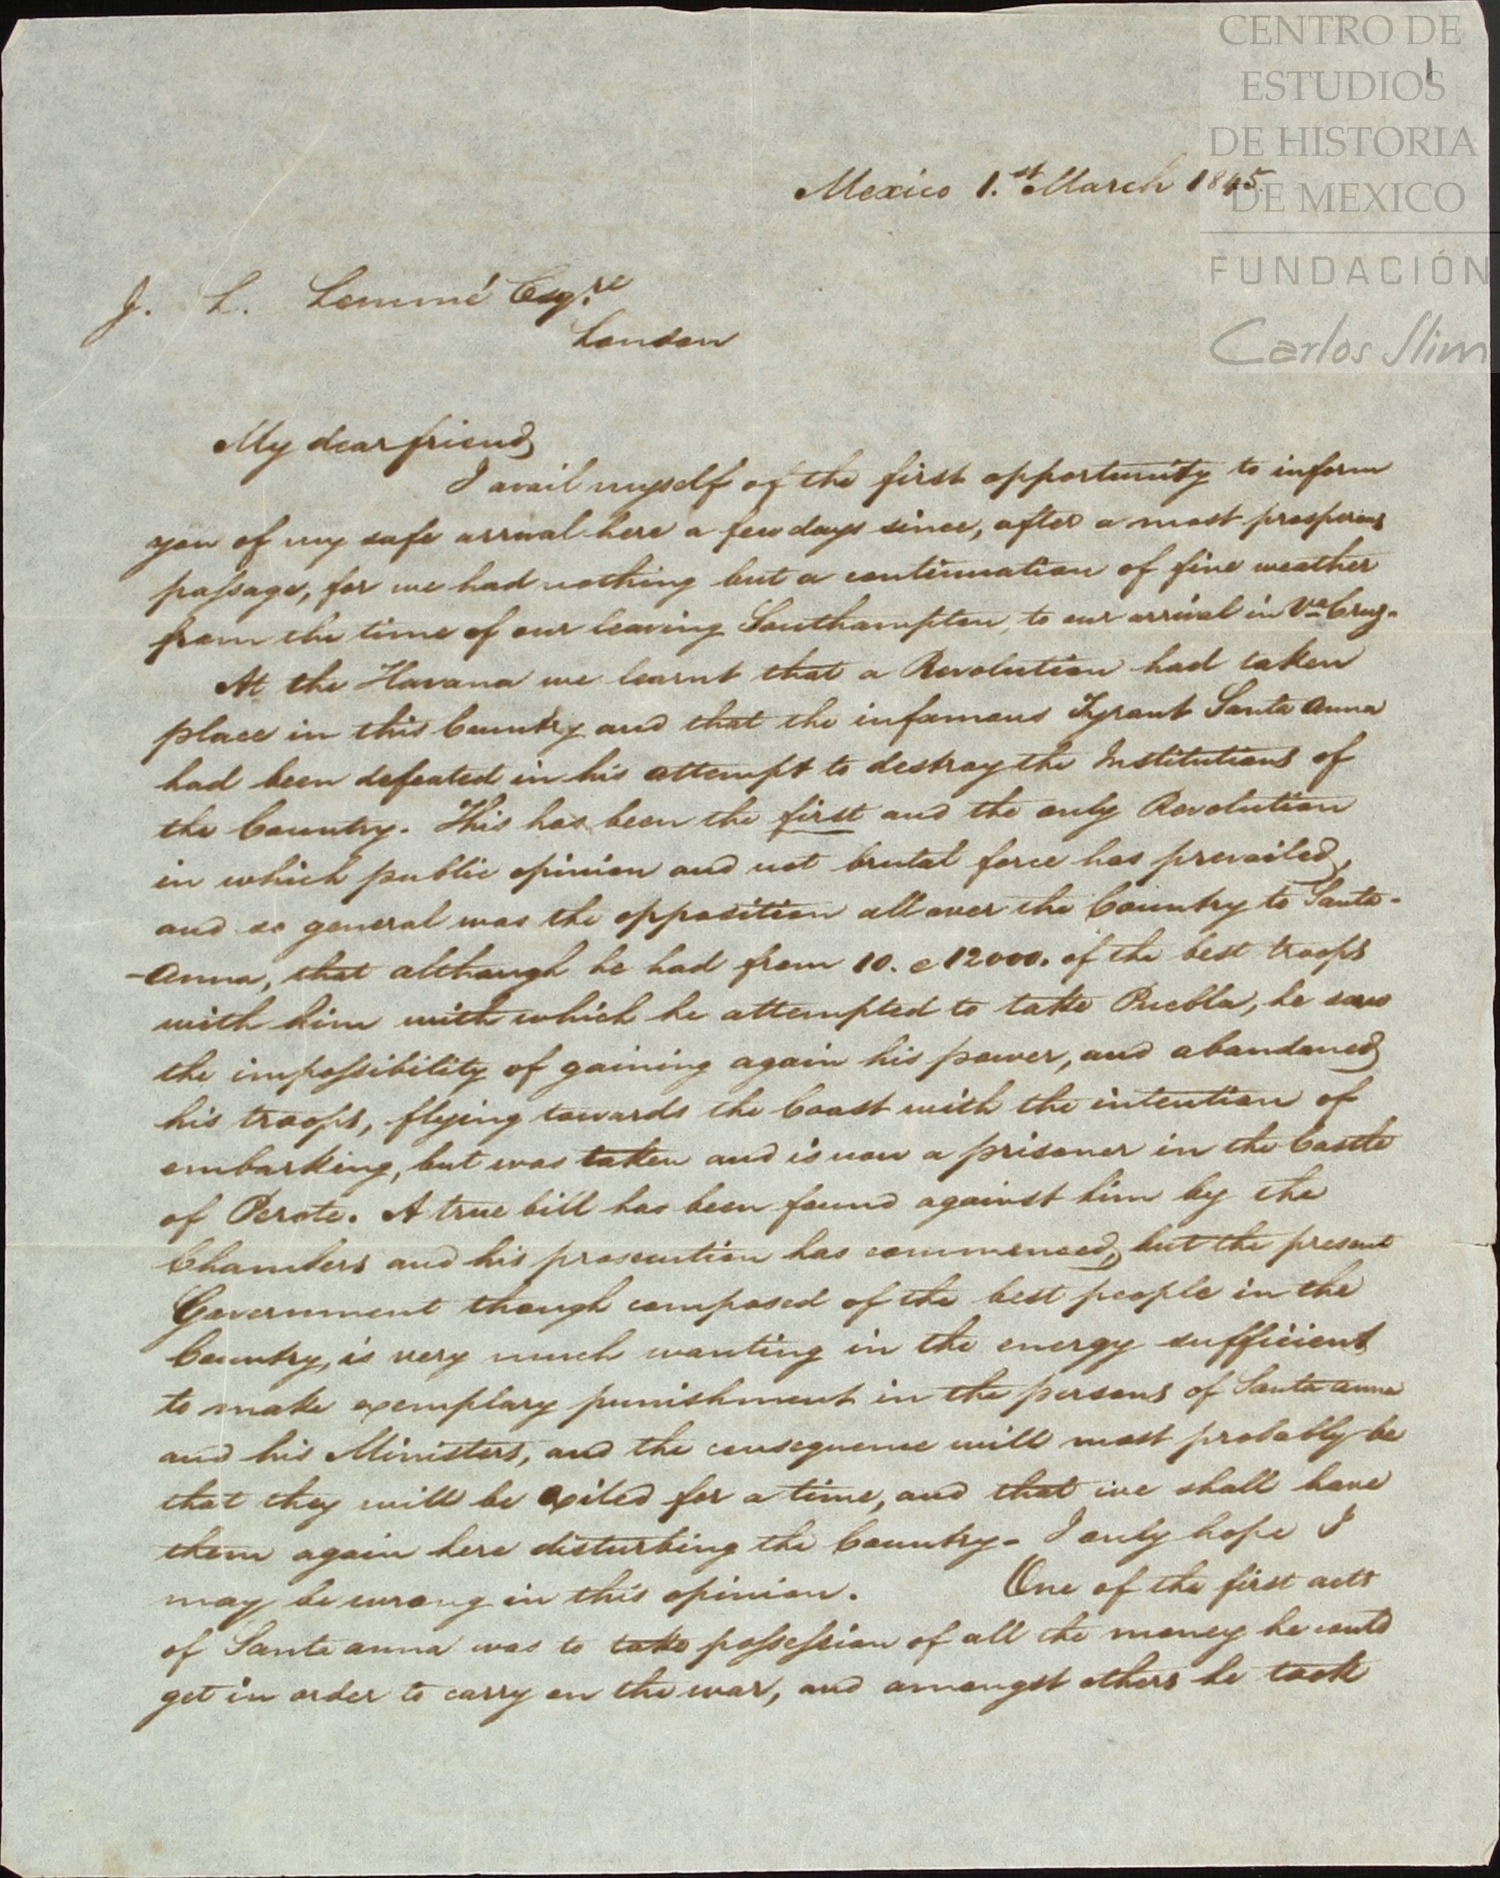 CENTRO DE
ESTUDIOS
DE HISTORIA
DE MEXICO
FUNDACIÓN
Carlos Slim
1
Mexico 1.st March 1845.
J. L. Lemmé Esqre.
London
My dear friend
I avail myself of the first opportunity to inform
you of my safe arrival here a few days since, after a most prosperous
passage, for we had nothing but a continuation of fine weather
from the time of our leaving Southampton, to our arrival in Va Cruz.
At the Havana we learnt that a Revolution had taken
place in this Country and that the infamous Tyrant Santa Anna
had been defeated in his attempt to destroy the Institutions of
the Country. This has been the first and the only Revolution
in which public opinion and not brutal force has prevailed,
and so general was the opposition all over the Country to Santa-
-Anna, that although he had from 10. a 12000. of the best troops
with him with which he attempted to take Puebla, he saw
the impossibility of gaining again his power, and abandoned
his troops, flying towards the Coast with the intention of
embarking, but was taken and is now a prisoner in the Castle
of Perote. A true bill has been found against him by the
Chambers and his prosecution has commenced, but the present
Government though composed of the best people in the
Country, is very much wanting in the energy sufficient
to make exemplary punishment in the persons of Santa anna
and his Ministers, and the consequence will most probably be
that they will be exiled for a time, and that we shall have
them again here disturbing the Country. I only hope I
may be wrong in this opinion. One of the first acts
of Santa anna was to take possession of all the money he could
get in order to carry on the war, and amongst others he took